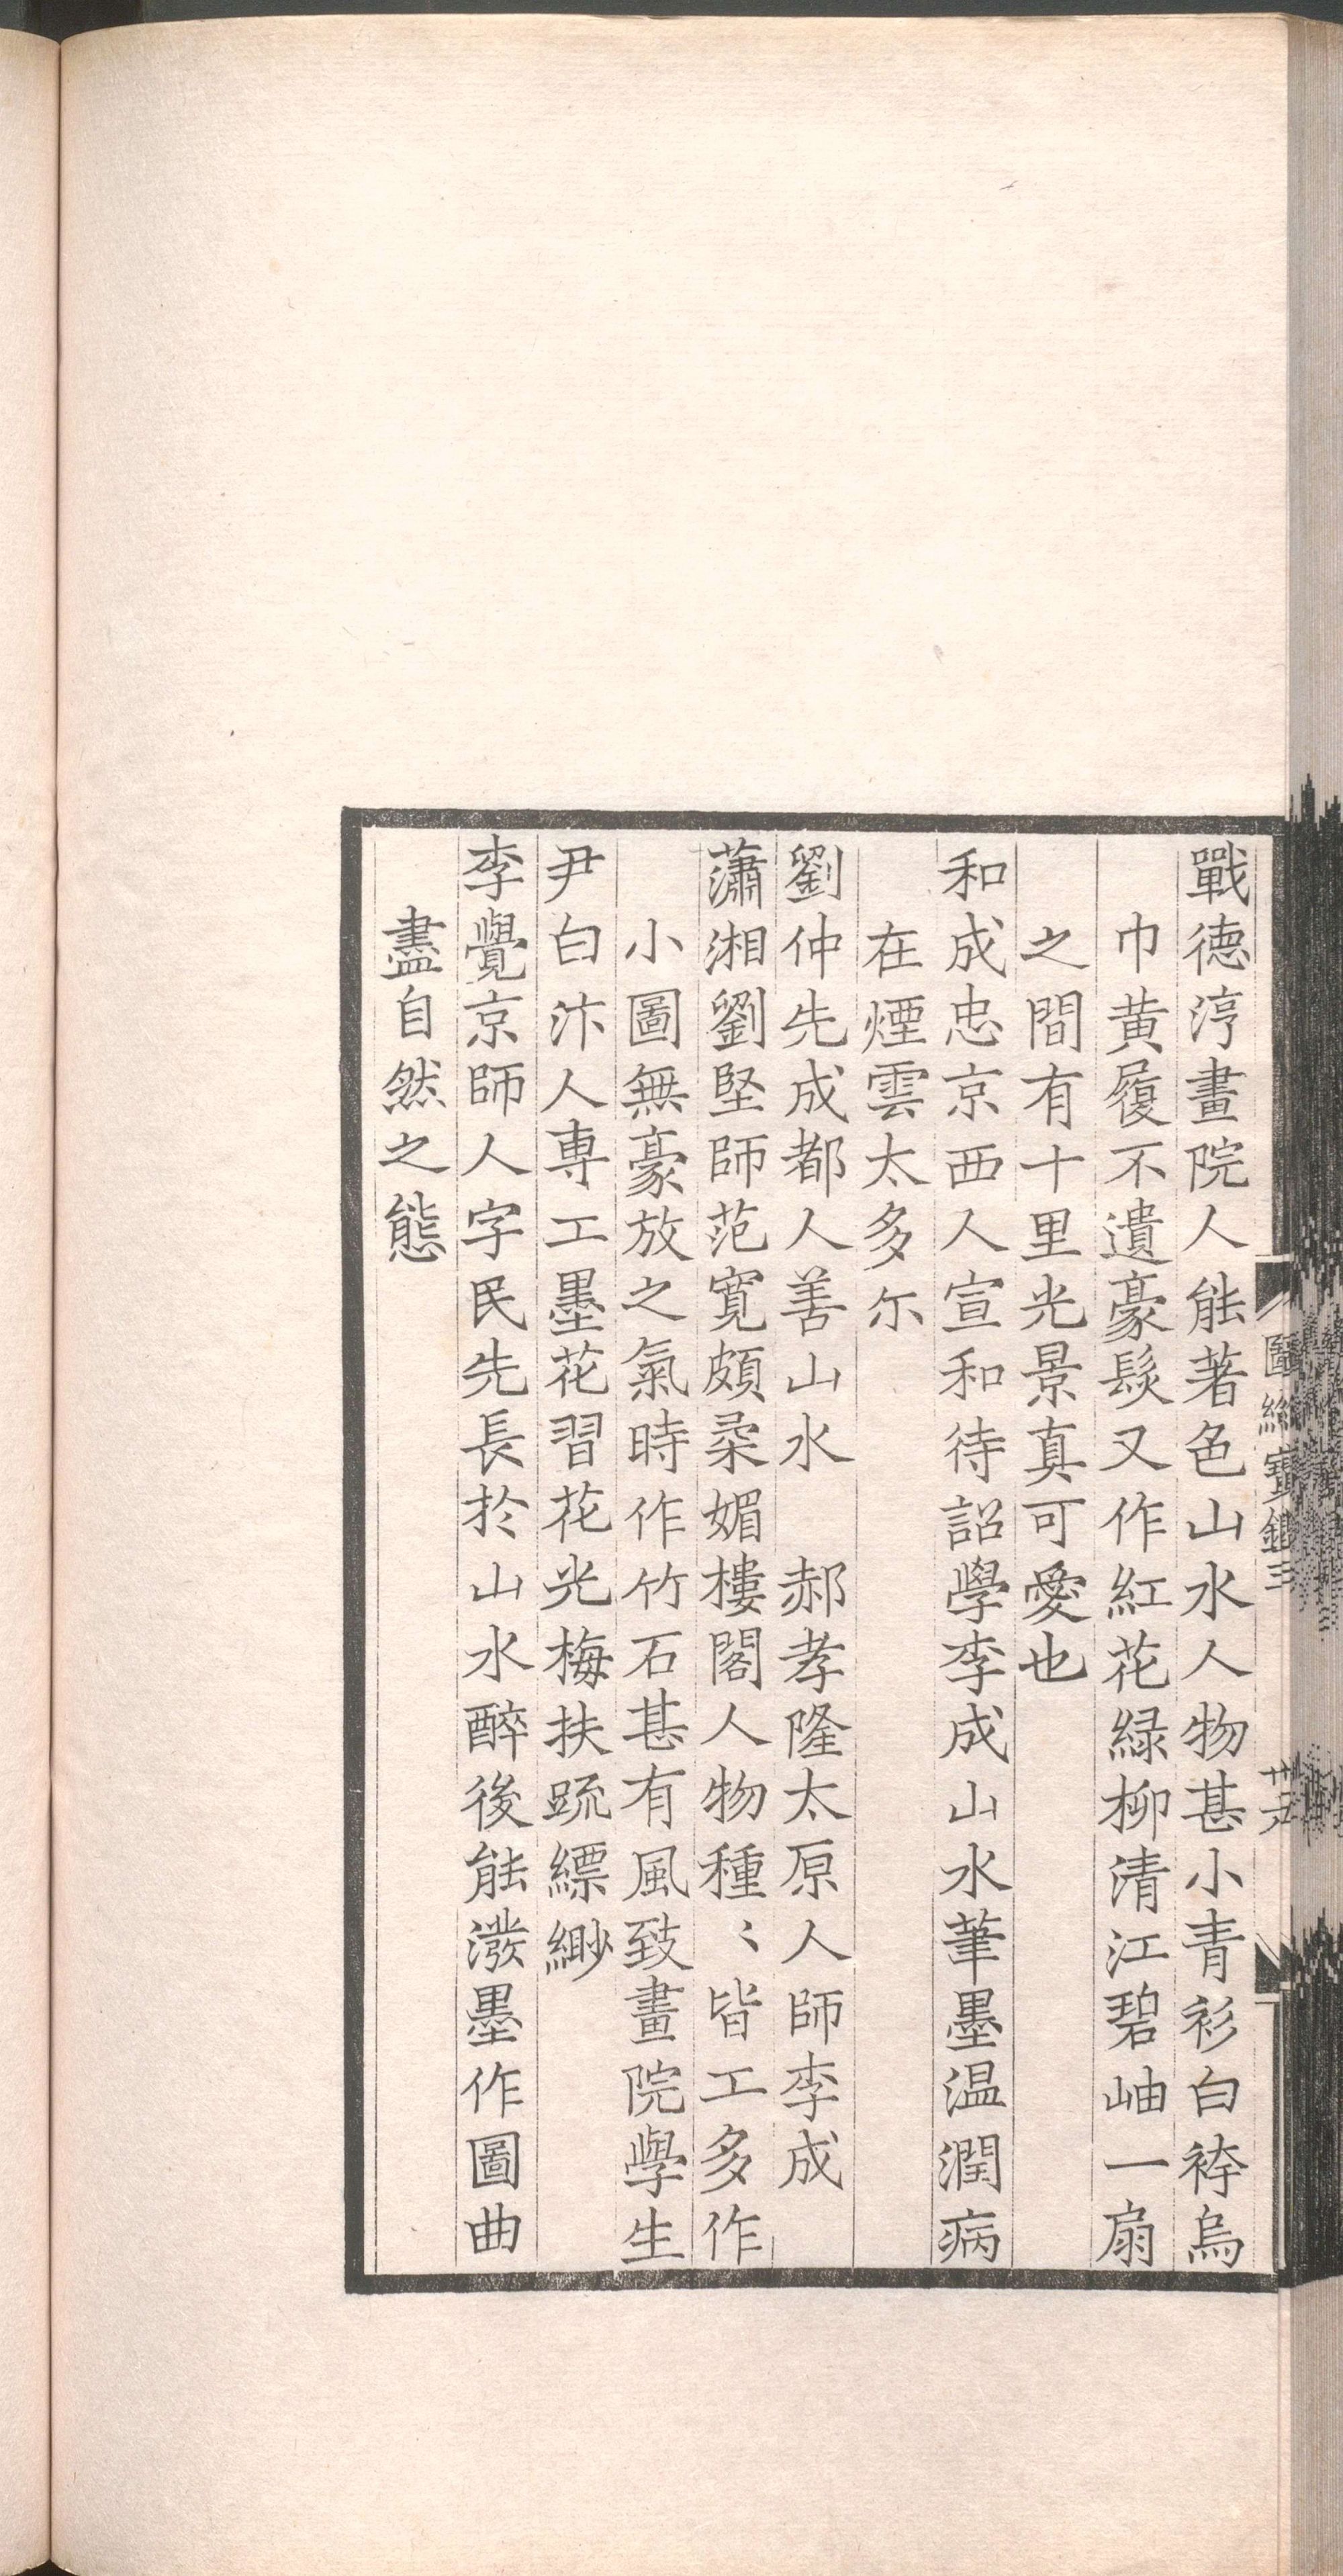 戰德淳畫院人能著色山水人物甚小青衫白袴烏
巾黃履不遺豪髮又作紅花緑柳清江碧岫一扇
之間有十里光景真可愛也
和成忠京西人宣和待詔學李成山水筆墨温潤病
在煙雲太多尓
劉仲先成都人善山水　郝孝隆太原人師李成
蕭湘劉堅師范寛頗柔媚樓閣人物種〻皆工多作
小圖無豪放之氣時作竹石甚有風致畫院學生
尹白汴人専工墨花習花光梅扶踈縹緲
李覺京師人字民先長於山水醉後能潑墨作圖曲
盡自然之態
圖繪寶鑑三
廿六